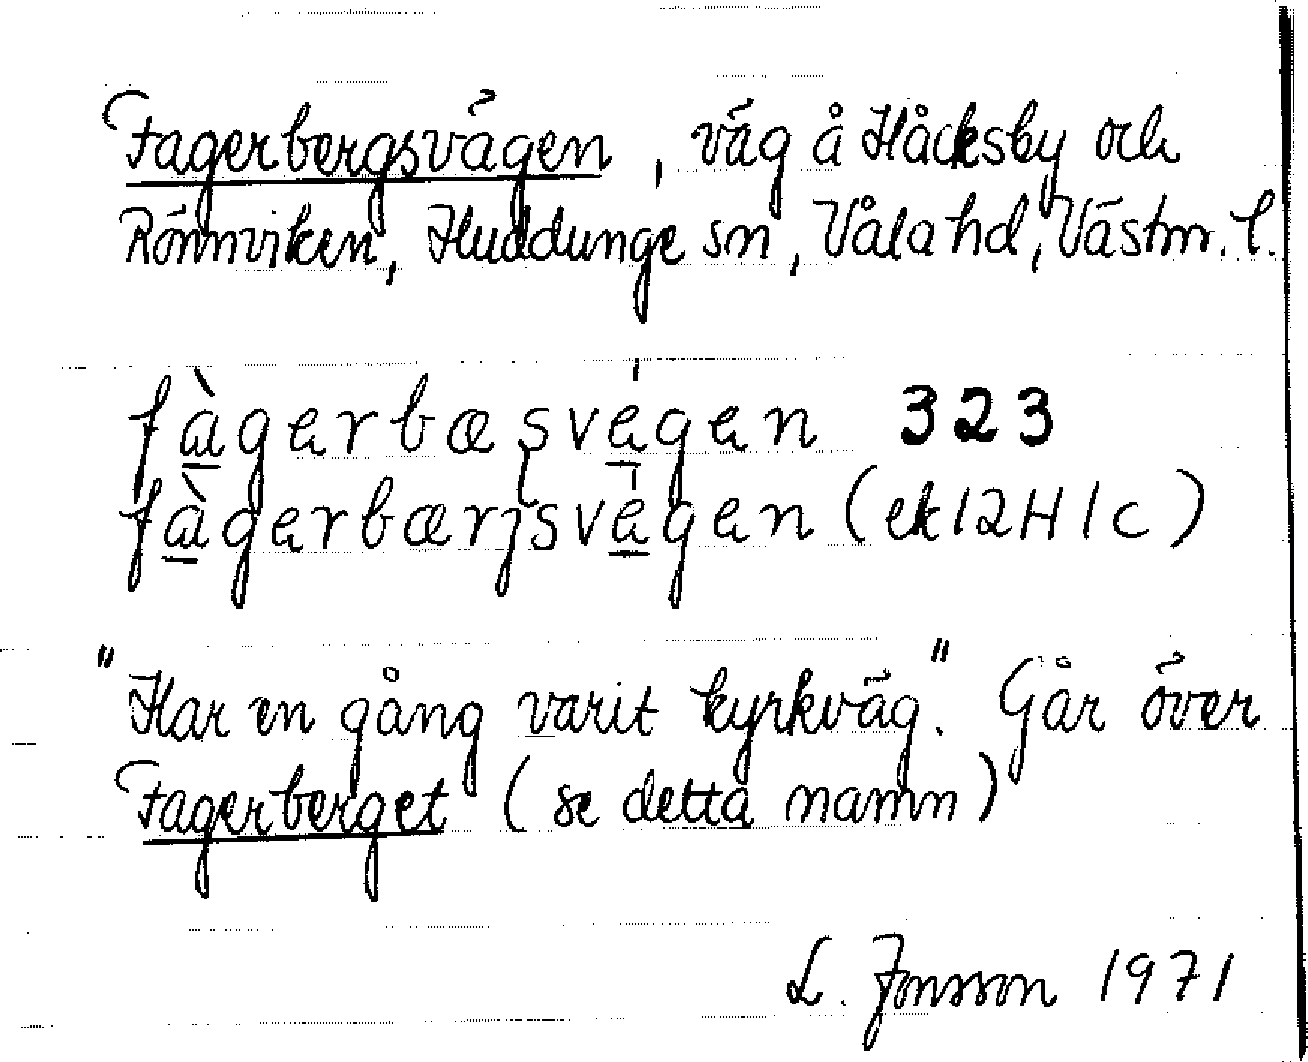 Fagerbergsvägen, väg å Håcksby och
Rönnviken, Huddunge sn, Våla hd, Västm. l.
fàgerbæşvégen 323
fàgerbærjsvégen (ek 12H 1c)
"Har en gång varit kyrkväg". Går över
Fagerberget (se detta namn)
L. Jonsson 1971